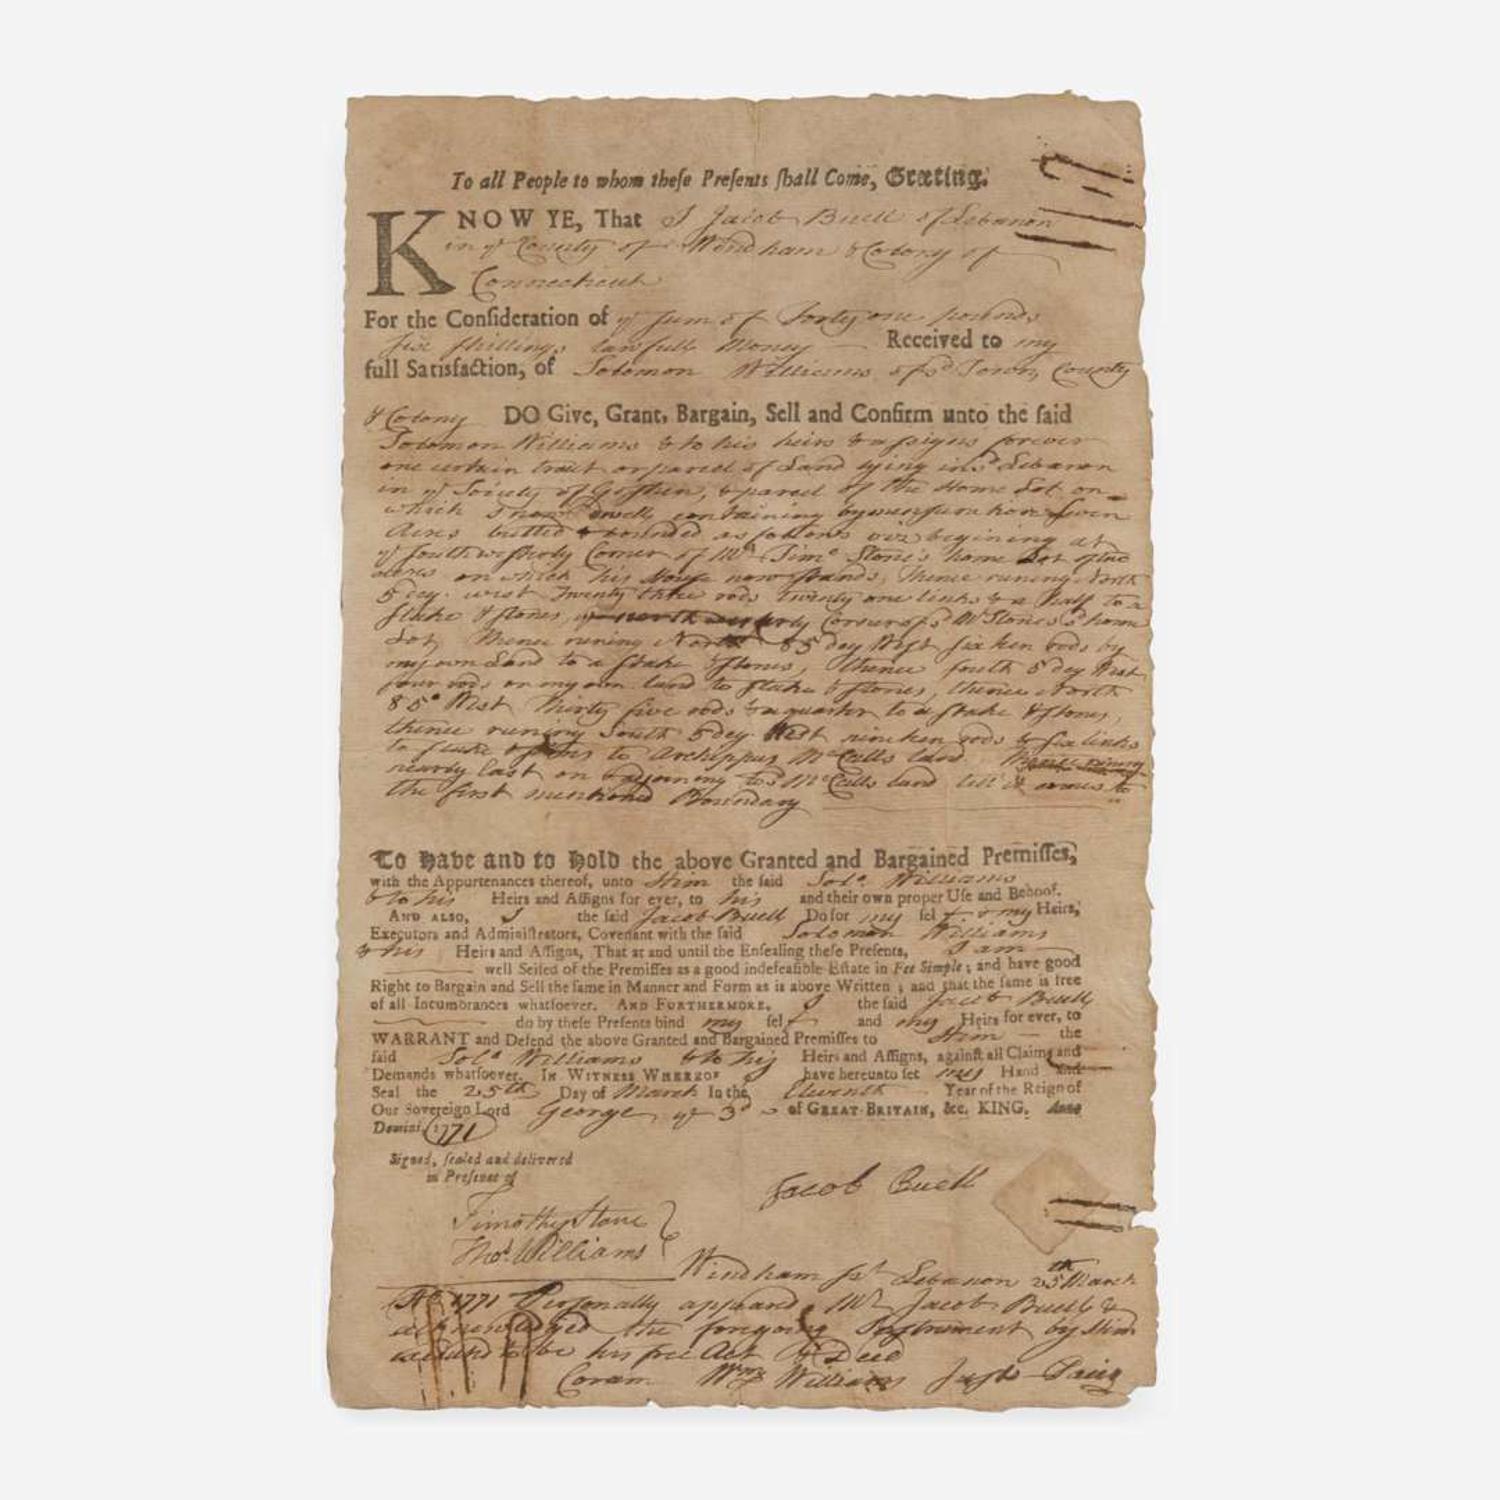 To all People to whom theſe Preſents ſhall Come, Greeting.
KNOW YE, That I Jacob Buell of Lebanon
in yͤ County of Windham & Colony of
Connecticut
For the Conſideration of yͤ Sum of Forty one pounds
ſix ſhillings lawfull Money Received to my
full Satisfaction, of Solomon Williams of sᵈ Town, County
& Colony DO Give, Grant, Bargain, Sell and Confirm unto the ſaid
Solomon Williams & to his heirs & aſsigns forever
one certain tract or parcel of Land lying in sᵈ Lebanon
in yͤ Society of Goſhen, & parcel of the Home Lot on
which I now dwell containing by menſuration Seven
Acres butted & bounded as follows viz begining at
yͤ Southweſterly Corner of Mʳ Timᵒ Stone's home Lot of two
acres on which his Houſe now ſtands, Thence runing North
5 deg. west Twenty three rods Twenty one links & a half to a
ſtake & ſtones, yͤ north westerly Corner of sᵈ Mʳ Stones's home
Lot, Thence runing North 85 deg West ſixteen rods by
my own Land to a ſtake & ſtones, thence ſouth 5 deg West
four rods on my own land to ſtake & ſtones, thence North
85° West Thirty five rods & a quarter to a ſtake & ſtones,
thence runing South 5 deg. West nineteen rods & ſix links
to ſtake & ſtones to Archippus McCalls land. Thence runing
nearly East on & adjoining to sᵈ McCalls land till it comes to
the first mentioned Boundary
To Have and to Hold the above Granted and Bargained Premiſſes,
with the Appurtenances thereof, unto Him the ſaid Solᵒ Williams
& to his Heirs and Aſſigns for ever, to his and their own proper Uſe and Behoof.
AND ALSO, I the ſaid Jacob Buell Do for my ſelf & my Heirs,
Executors and Adminiſtrators, Covenant with the ſaid Solomon Williams
& his Heirs and Aſſigns, That at and until the Enſealing theſe Preſents, I am
well Seiſed of the Premiſſes as a good indefeaſible Eſtate in Fee Simple; and have good
Right to Bargain and Sell the ſame in Manner and Form as is above Written; and that the ſame is free
of all Incumbrances whatſoever. AND FURTHERMORE, I the ſaid Jacob Buell
do by theſe Preſents bind my ſelf and my Heirs for ever, to
WARRANT and Defend the above Granted and Bargained Premiſſes to Him the
ſaid Solᵒ Williams & to his Heirs and Aſſigns, againſt all Claims and
Demands whatſoever. IN WITNESS WHEREOF I have hereunto ſet my Hand and
Seal the 25th Day of March In the Eleventh Year of the Reign of
Our Sovereign Lord George yͤ 3ᵈ of GREAT-BRITAIN, &c. KING. Anno
Domini, 1771
Signed, ſealed and delivered
in Preſence of
Jacob Buell
Timothy Stone
Thoˢ Williams
Windham ſsᵗ Lebanon 25th March
AD 1771 Perſonally appeared Mʳ Jacob Buell &
acknowledged the foregoing Inſtrument by Him
to be his free Act & Deed
Coram Wᵐ Williams Juſt Pacis